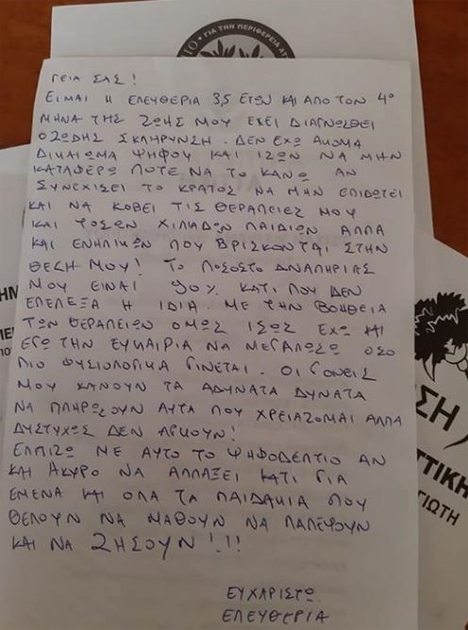 ΓΙΑ ΤΗΝ ΠΕΡΙΦΕΡΕΙΑ ΑΤ
ΓΕΙΑ ΣΑΣ!
ΕΙΜΑΙ Η ΕΛΕΥΘΕΡΙΑ 3,5 ΕΤΩΝ ΚΑΙ ΑΠΟ ΤΟΝ 4ο
ΜΗΝΑ ΤΗΣ ΖΩΗΣ ΜΟΥ ΕΧΕΙ ΔΙΑΓΝΩΣΘΕΙ
ΟΖΩΔΗΣ ΣΚΛΗΡΥΝΣΗ. ΔΕΝ ΕΧΩ ΑΚΟΜΑ
ΔΙΚΑΙΩΜΑ ΨΗΦΟΥ ΚΑΙ ΙΣΩΣ ΝΑ ΜΗΝ
ΚΑΤΑΦΕΡΩ ΠΟΤΕ ΝΑ ΤΟ ΚΑΝΩ ΑΝ
ΣΥΝΕΧΙΣΕΙ ΤΟ ΚΡΑΤΟΣ ΝΑ ΜΗΝ ΕΠΙΔΟΤΕΙ
ΚΑΙ ΝΑ ΚΟΒΕΙ ΤΙΣ ΘΕΡΑΠΕΙΕΣ ΜΟΥ
ΚΑΙ ΤΟΣΩΝ ΧΙΛΙΑΔΩΝ ΠΑΙΔΙΩΝ ΑΛΛΑ
ΚΑΙ ΕΝΗΛΙΚΩΝ ΠΟΥ ΒΡΙΣΚΟΝΤΑΙ ΣΤΗΝ
ΘΕΣΗ ΜΟΥ! ΤΟ ΠΟΣΟΣΤΟ ΑΝΑΠΗΡΙΑΣ
ΜΟΥ ΕΙΝΑΙ 90% ΚΑΤΙ ΠΟΥ ΔΕΝ
ΕΠΕΛΕΞΑ Η ΙΔΙΑ. ΜΕ ΤΗΝ ΒΟΗΘΕΙΑ
ΤΩΝ ΘΕΡΑΠΕΙΩΝ ΟΜΩΣ ΙΣΩΣ ΕΧΩ ΚΙ
ΕΓΩ ΤΗΝ ΕΥΚΑΙΡΙΑ ΝΑ ΜΕΓΑΛΩΣΩ ΟΣΟ
ΠΙΟ ΦΥΣΙΟΛΟΓΙΚΑ ΓΙΝΕΤΑΙ. ΟΙ ΓΟΝΕΙΣ
ΜΟΥ ΚΑΝΟΥΝ ΤΑ ΑΔΥΝΑΤΑ ΔΥΝΑΤΑ
ΝΑ ΠΛΗΡΩΣΟΥΝ ΑΥΤΑ ΠΟΥ ΧΡΕΙΑΖΟΜΑΙ ΑΛΛΑ
ΔΥΣΤΥΧΩΣ ΔΕΝ ΑΡΚΟΥΝ!
ΕΛΠΙΖΩ ΜΕ ΑΥΤΟ ΤΟ ΨΗΦΟΔΕΛΤΙΟ ΑΝ
ΚΑΙ ΑΚΥΡΟ ΝΑ ΑΛΛΑΞΕΙ ΚΑΤΙ ΓΙΑ
ΕΜΕΝΑ ΚΑΙ ΟΛΑ ΤΑ ΠΑΙΔΑΚΙΑ ΠΟΥ
ΘΕΛΟΥΝ ΝΑ ΜΑΘΟΥΝ ΝΑ ΠΑΛΕΨΟΥΝ
ΚΑΙ ΝΑ ΖΗΣΟΥΝ!!!
ΕΥΧΑΡΙΣΤΩ
ΕΛΕΥΘΕΡΙΑ
ΣΗ
ΤΤΙΚΗ
ΓΙΩΤΗ